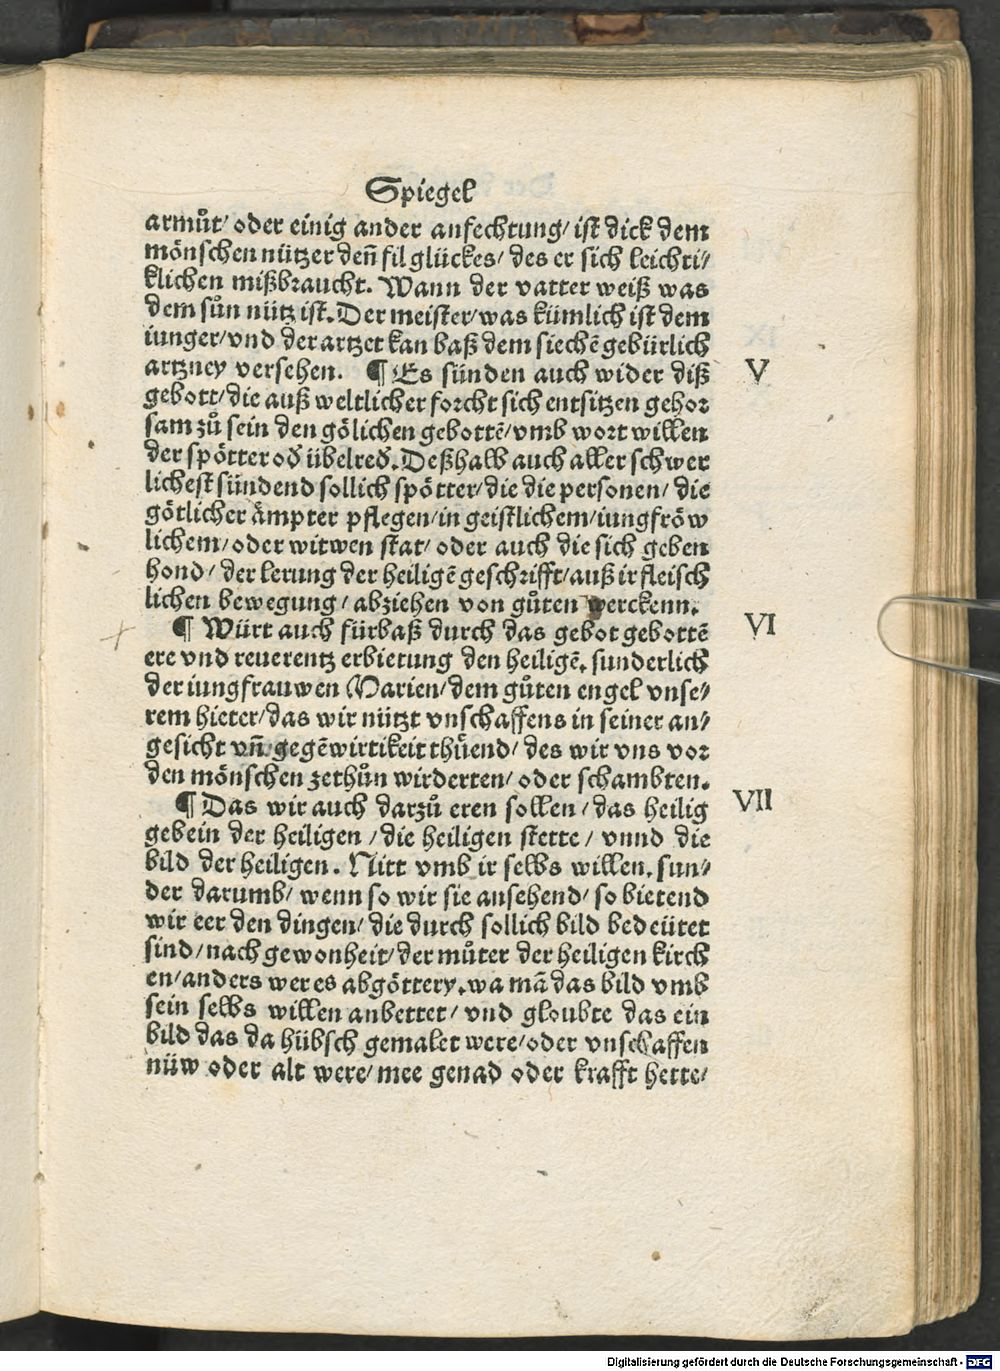 Spiegel
armůt/ oder einig ander anfechtung/ ist dick dem
mönschen nützer deñ fil glückes/ des er sich leichti/
klichen mißbraucht. Wann der vatter weiß was
dem sůn nütz ist. Der meister/was kümlich ist dem
iunger/vnd der artzet kan baß dem siechē gebürlich
artzney versehen. ¶ Es sünden auch wider diß
V
gebott/die auß weltlicher forcht sich entsitzen gehor
sam zů sein den gölichen gebottē/vmb wort willen
der spötter oď übelreď. Deßhalb auch aller schwer
lichest sündend sollich spötter/die die personen/ die
götlicher ämpter pflegen/in geistlichem/iungfröw
lichem/oder witwen stat/ oder auch die sich geben
hond/ der lerung der heiligē geschrifft/auß ir fleisch
lichen bewegung/ abziehen von gůten werckenn.
¶ Würt auch fürbaß durch das gebot gebottē
VI
ere vnd reuerentz erbietung den heiligē. sunderlich
der iungfrauwen Marien/dem gůten engel vnse/
rem hieter/das wir nützt vnschaffens in seiner an/
gesicht vñ gegēwirtikeit thüend/ des wir vns vor
den mönschen zethůn wirderten/ oder schambten.
¶ Das wir auch darzů eren sollen/das heilig
VII
gebein der heiligen/die heiligen stette/ vnnd die
bild der heiligen. Nitt vmb ir selbs willen. sun/
der darumb/ wenn so wir sie ansehend/ so bietend
wir eer den dingen/die durch sollich bild bedeütet
sind/nach gewonheit/der můter der heiligen kirch
en/anders wer es abgöttery.wa mā das bild vmb
sein selbs willen anbettet/ vnd gloubte das ein
bild das da hübsch gemalet were/oder vnschaffen
nüw oder alt were/mee genad oder krafft hette/
Digitalisierung gefördert durch die Deutsche Forschungsgemeinschaft - DFG